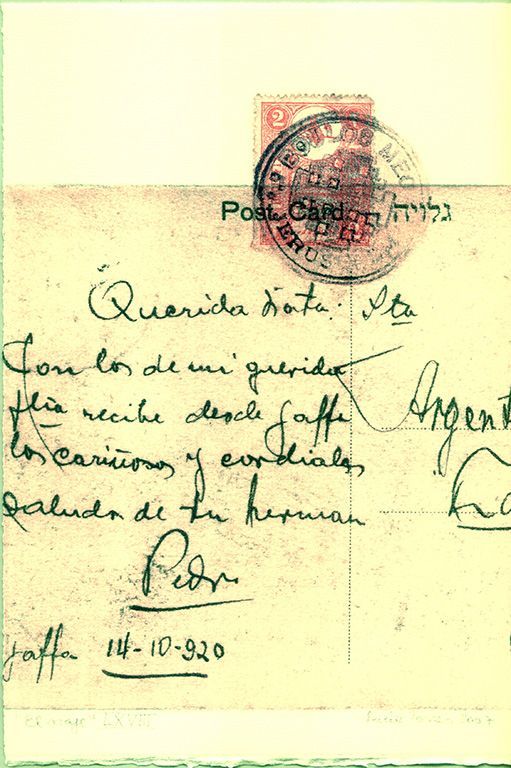 2
Post Card גלויה
JERUS
Querida Tata: Sta
Con los de mi querida
flia recibe desde Jaffa
los cariñosos y cordiales
saludos de tu herman
Pedro
Argent
Jaffa 14-10-920
LXVIII